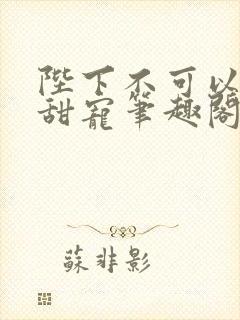 陛下不可以
甜寵筆趣閣
蘇非影